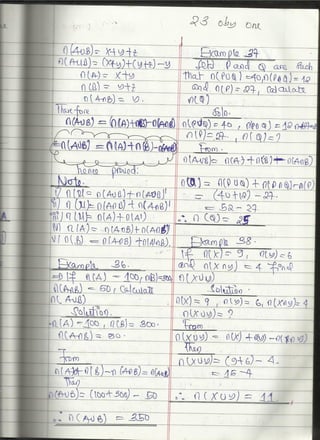 23 oby one
n(AUB) = x+y+z
n(AUB) = (x+y)+(y+z)-y
n(A) = x+y
n(B) = y+z
n(A∩B) = y.
Therefore
n(AUB) = n(A)+n(B)-n(A∩B)
∴ n(AUB) = n(A)+n(B)-n(A∩B)
hence proved.
Note.
I) n(U) = n(AUB)+n(AUB)'
II) n(U) = n(A∩B)+n(A∩B)'
III) n(U) = n(A)+n(A')
IV) n(A) = n(A∩B)+n(A∩B')
V) n(B) = n(A∩B)+n(A'∩B).
Example 36.
=> If n(A) = 100, n(B)=300
n(A∩B) = 50, Calculate
n(AUB)
Solution.
n(A) = 100, n(B) = 300.
n(A∩B) = 50.
From
n(A)+n(B)-n(A∩B) = n(AUB)
Then
n(AUB) = (100+300) - 50
∴ n(AUB) = 350
Example 37
Sets P and Q are such
that n(PUQ) = 40, n(P∩Q) = 12
and n(P) = 27, Calculate
n(Q)
Soln.
n(PUQ) = 40, n(P∩Q) = 12
n(P) = 27, n(Q) = ?
From.
n(AUB) = n(A)+n(B)-n(A∩B)
n(Q) = n(PUQ)+n(P∩Q)-n(P)
= (40+12)-27.
= 52-27
∴ n(Q) = 25
Example 38.
If n(X) = 9, n(Y) = 6
and n(X∩Y) = 4 find
n(XUY)
Solution.
n(X) = 9, n(Y) = 6, n(X∩Y) = 4
n(XUY) = ?
From
n(XUY) = n(X)+n(Y)-n(X∩Y)
Then
n(XUY) = (9+6)-4.
= 15-4
∴ n(XUY) = 11